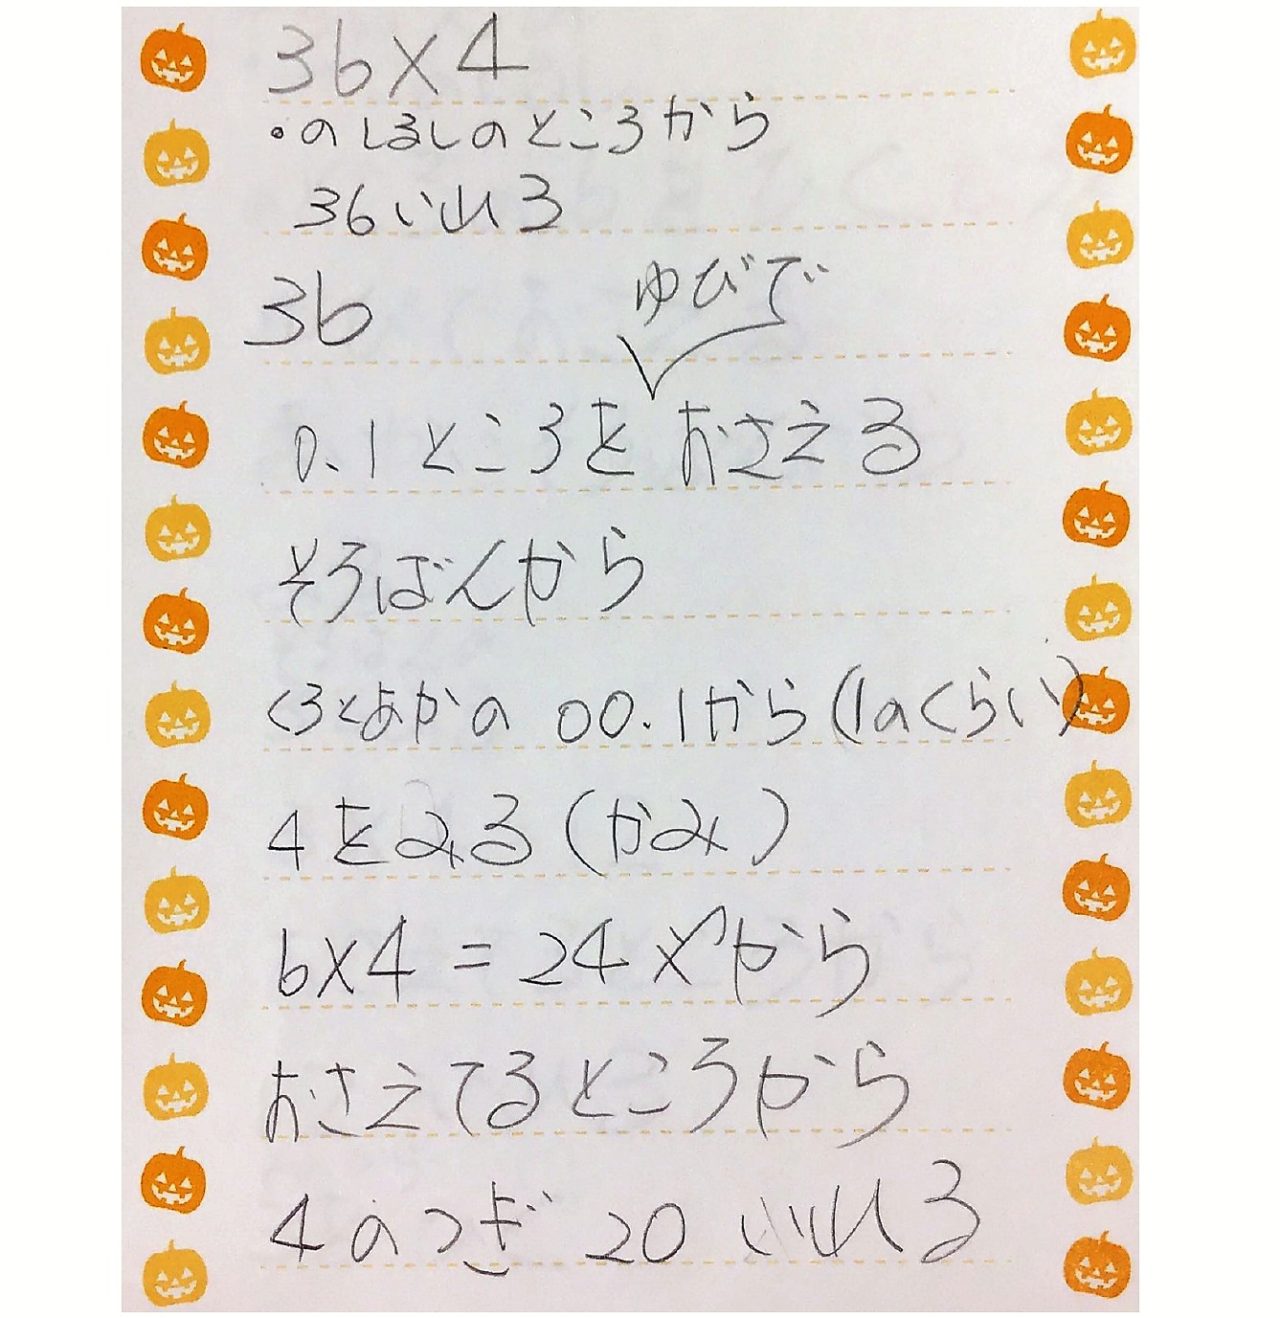 36×4
・のしるしのところから
36いれろ
36
ゆびで
0.1ところをおさえる
そろばんから
くろとあかの 00.1から(1のくらい)
4をみる(かみ)
6×4=24 から
おさえてるところから
4のつぎ 20 いれる